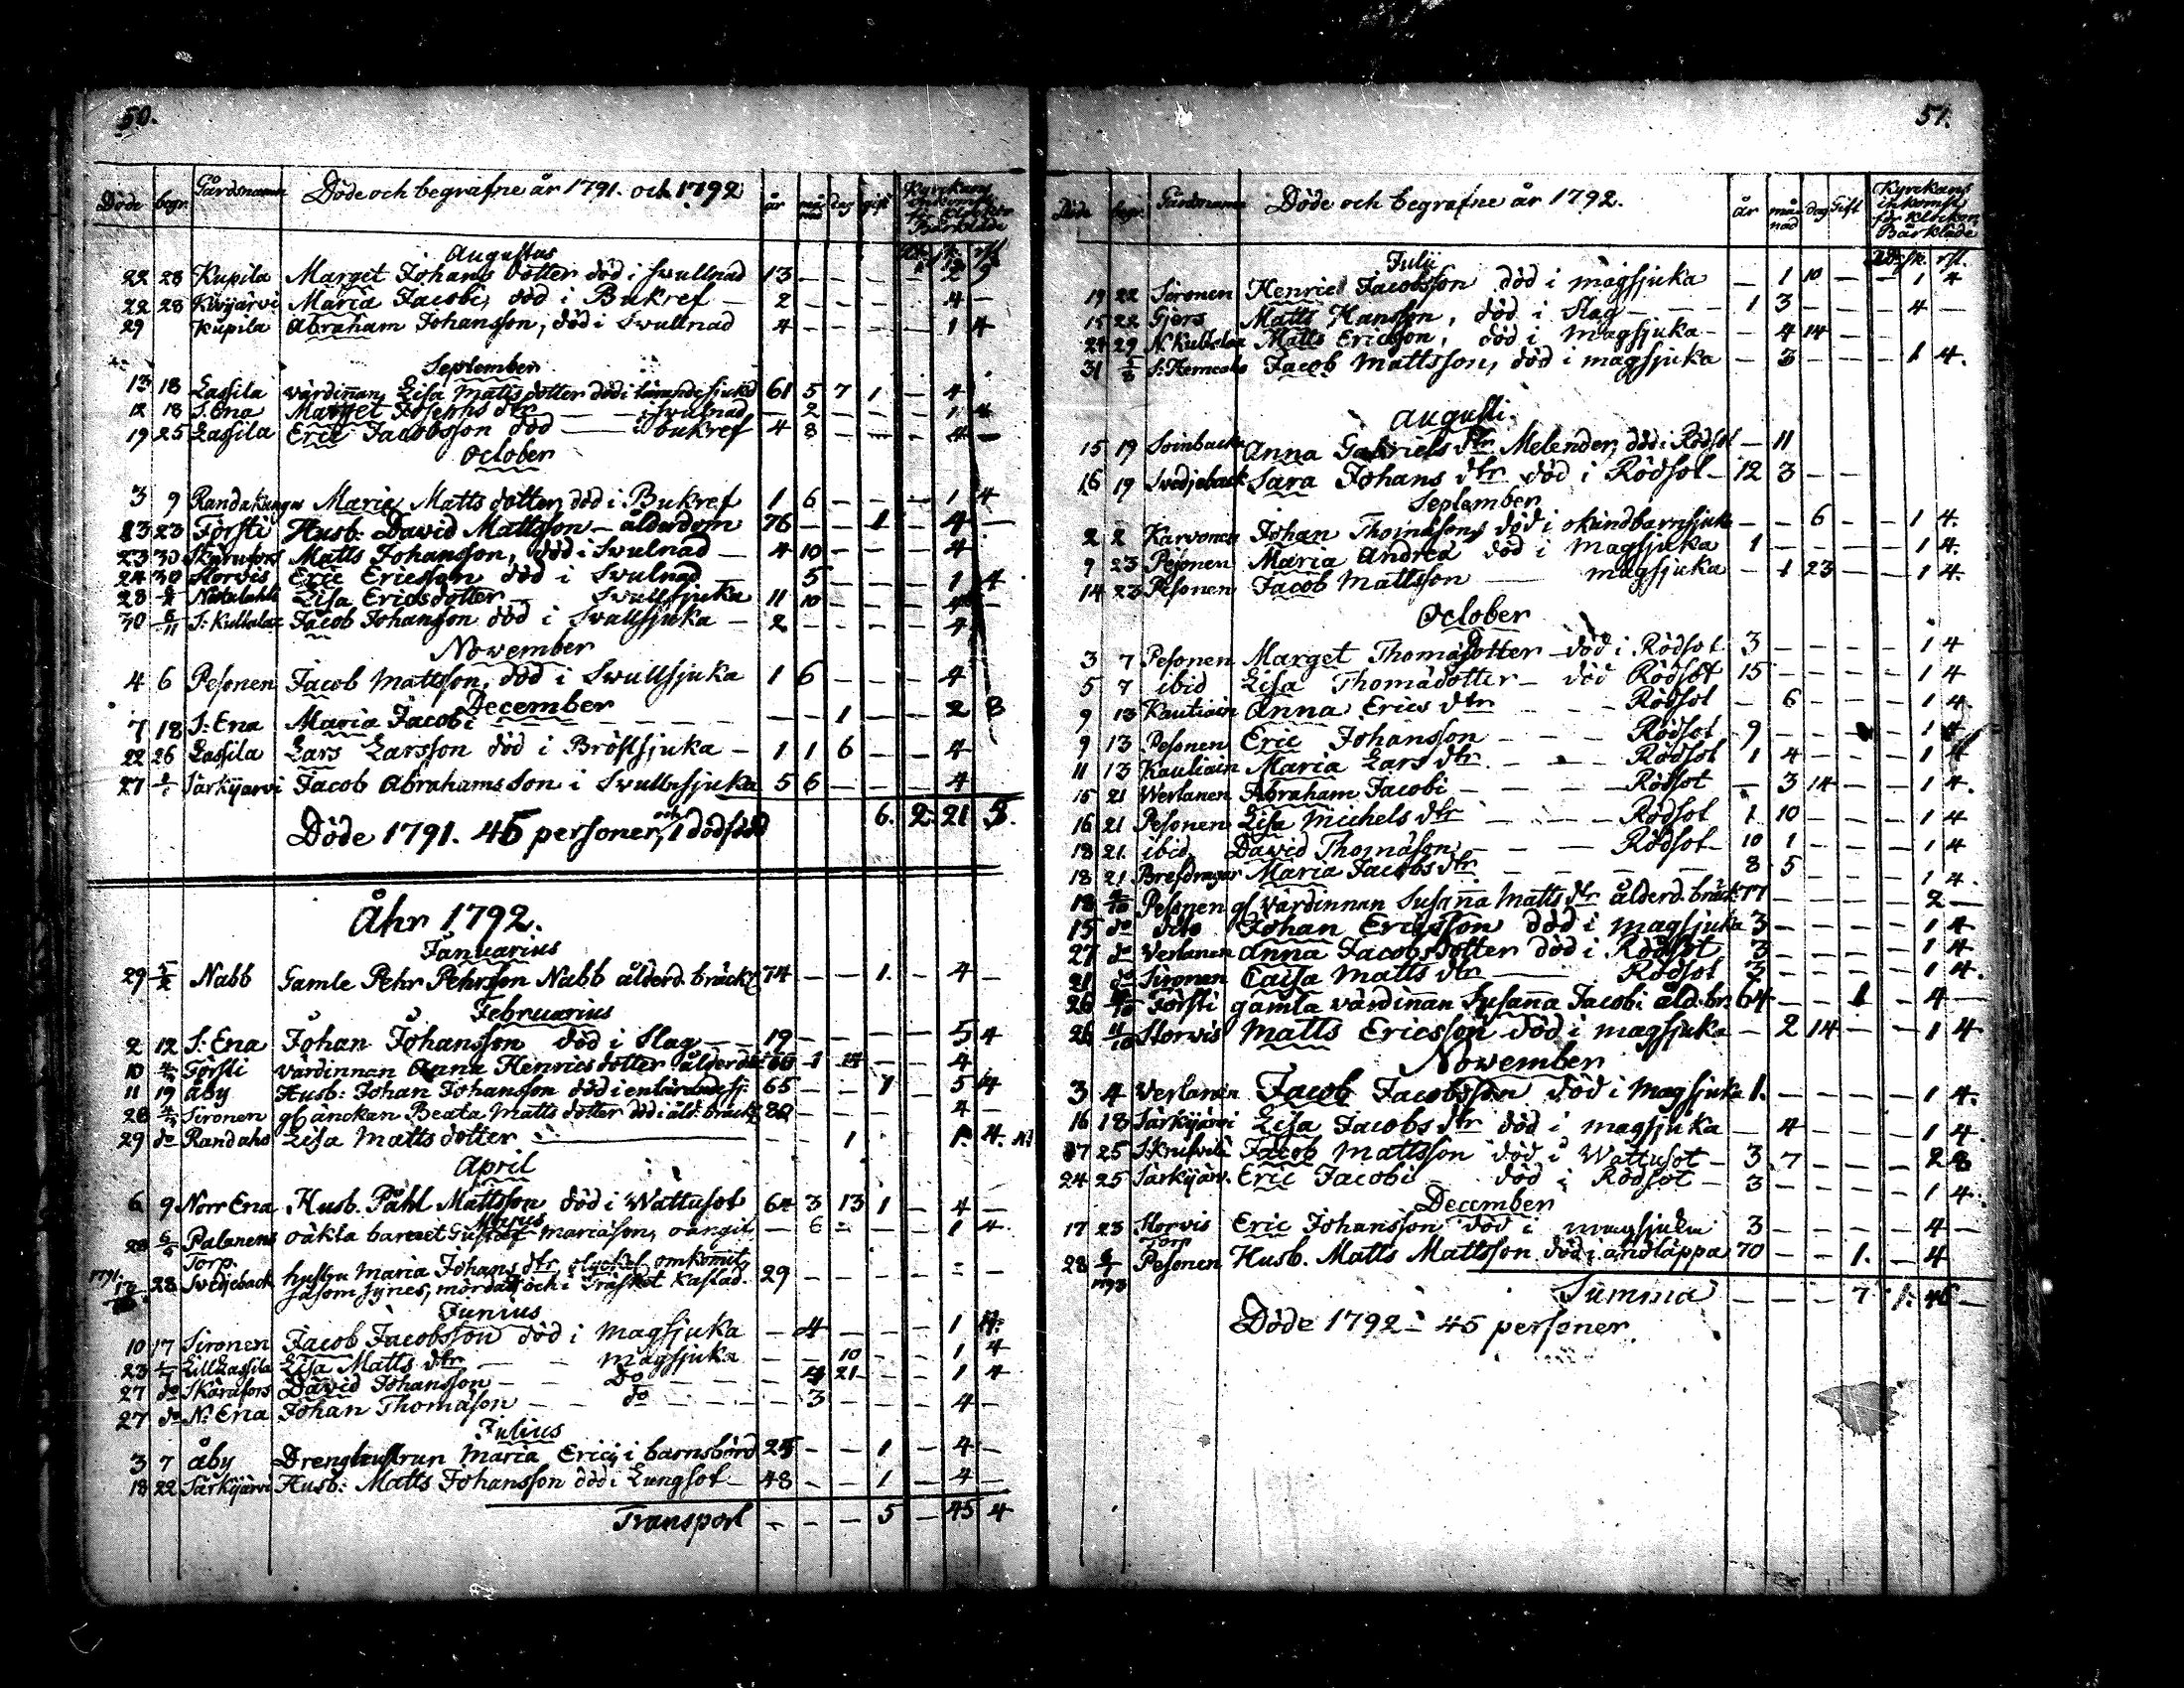 50.
Döde begr. Gårdsnamn Döde och begrafne år 1791. och 1792 år månad dag gift Kyrckans inkomst för Klockor Bårkläde
Augustus
22 28 Kupila Marget Johans dotter död i Swullnad 13 — — — — 2 9
22 28 Kivijärvi Maria Jacobi, död i Bukref — 2 — — — — 4 —
29 Kupila Abraham Johansson, död i Swullnad 4 — — — — 1 4
September
13 18 Lassila värdinnan Lisa Matts dotter död i tärande sjukd 61 5 7 1 — 4
12 18 S. Ena Marget Josephs dtr — — i Swulnad — 2 — — — 1 4
19 25 Lassila Eric Jacobsson död — i bukref 4 8 — — — 4 —
October
3 9 Randakangas Maria Matts dotter, död i Bukref 1 6 — — — 1 4
13 23 Forsti Husb: David Mattsson — ålderdom 76 — — 1 — 4 —
23 30 Skarafors Matts Johansson, död i Swulnad — 4 10 — — — 4
24 30 Storvis Eric Ericsson död i Swulnad — 5 — — — 1 4
28 Lisa Ericsdotter — Swullsjuka 11 10 — — — 4 —
30 6/11 S: Kullalax Jacob Johansson död i Swullsjuka — 2 — — — — 4
November
4 6 Pesonen Jacob Mattsson, död i Swullsjuka 1 6 — — — 4
December
7 18 S: Ena Maria Jacobi — — — — — — — 1 — — 2 8
22 26 Lassila Lars Larsson död i Bröstsjuka — 1 1 6 — — 4
27 Särkijärvi Jacob Abrahamsson i Swullnsjuka 5 6 — — — 4
6. 2. 21 5.
Döde 1791. 45 personer, och 1 dödfödd
Åhr 1792.
Januarius
29 5/2 Nabb Gamle Pehr Pehrsson Nabb ålderd. bräckl 74 — — 1. — 4 —
Februarius
2 12 S: Ena Johan Johansson död i Slag — — 19 — — — — 5 4
10 Forsti värdinnan Anna Henricsdotter ålderdom — 4
11 19 åby Husb: Johan Johansson död i en tärande sj: 65 — — 1 5 4
28 Sironen gl änckan Beata Matts dotter död i åld. bräckl — — — — 4 —
29 do Randahs Lisa Matts dotter — — — 1 1. 4.
April
6 9 Norr Ena Husb. Påhl Mattsson död i Wattusot 64 3 13 1 — 4 —
Majus
28 6/5 Palanens Torp. oäkta barnet Gustaf Mariason, oangif. — 6 — — — 1 4.
1791. 28 Svedjeback hustru Maria Johans dtr olyckel. omkommit,
såsom synes, mördad och i Träsket kastad. 29 — — — — — —
Junius
10 17 Sironen Jacob Jacobsson död i magsjuka — 4 — — — 1 4.
23 1/7 Lill Lassila Lisa Matts dtr — — magsjuka — — 10 — — 1 4
27 do Skarafors David Johansson — — Do — 4 21 — — 1 4
27 do N: Ena Johan Thomason — — do — — — 3 — — — 4 —
Julius
3 7 åby Drenghustrun Maria Erici, i barnsbörd 25 — — 1 — 4 —
18 22 Särkijärvi Husb: Matts Johansson död i Lungsot — 48 — — 1 — 4 —
Transport — — — 5 — 45 4
51.
Döde begr. Gårdsnamn Döde och begrafne år 1792. år månad dag Gift Kyrckans inkomst för Klockor Bårkläde
Julii
19 22 Sironen Henric Jacobsson död i magsjuka — 1 10 — — 1 4
15 22 Gjers Matts Hansson, död i Slag — — — 1 3 — — — 4 —
24 29 N. Kullalax Matts Ericsson, död i magsjuka — — 4 14 — —
31 Jacob Mattsson, död i magsjuka — 3 — — — 1 4.
Augusti.
15 19 Soinbacka Anna Gabriels dtr Melender, död i Rödsot — 11
16 19 Svedjeback Sara Johans dtr död i Rödsot — 12 3 — —
September
2 2 Karvonen Johan Thomason, död i okänd barnsjuka — — 6 — — 1 4.
9 23 Pesonen Maria Andreä död i magsjuka 1 — — — — 1 4.
14 23 Pesonen Jacob Mattsson — magsjuka — 1 23 — — 1 4.
October
3 7 Pesonen Marget Thomasdotter död i Rödsot 3 — — — — 1 4
5 7 ibid Lisa Thomädotter — död Rödsot 15 — — — — 1 4
9 13 Kautiain Anna Erics dtr — — Rödsot — 6 — — — 1 4
9 13 Pesonen Eric Johansson — — — Rödsot 9 — — — — 1 4
11 13 Kautiain Maria Lars dtr — — — Rödsot 1 4 — — — 1 4
15 21 Werlanen Abraham Jacobi — — — — Rödsot — 3 14 — — 1 4.
16 21 Pesonen Lisa Michels dtr — — — Rödsot 1 10 — — — 1 4
18 21 ibid David Thomason — — — Rödsot — 10 1 — — — 1 4
18 21 Bresdragar Maria Jacobs dtr — — — — — 8 5 — — — 1 4.
18 Pesonen gl värdinnan Susanna Matts dtr ålderd. bräck: 77 — — — — 2 —
15 do dito Johan Ericsson död i magsjuka 3 — — — — 1 4
27 do Verlanen Anna Jacobsdotter död i Rödsot 3 — — — — 1 4
21 do Sironen Caisa Matts dtr — Rödsot 3 — — — — 1 4.
26 Forsti gamla värdinnan Susanna Jacobi åld. br. 64 — — 1 — 4 —
26 Storvis Matts Ericsson död i magsjuka — 2 14 — — 1 4
November
3 4 Verlanen Jacob Jacobsson död i magsjuka 1. — — — — 1 4.
16 18 Särkijärvi Lisa Jacobs dtr död i magsjuka — 4 — — — 1 4.
17 25 Jacob Mattsson död i Wattusot — 3 7 — — — 2 8
24 25 Särkijärv. Eric Jacobi — död i Rödsot — 3 — — — — 1 4.
December
17 23 Storvis Eric Johansson död i magsjuka 3 — — — — 4 —
Torp
28 6/1 1793 Pesonen Husb. Matts Mattsson död i andtäppa 70 — — 1. — 4
Summa — — — 7. 1. 46 —
Döde 1792 — 45 personer.